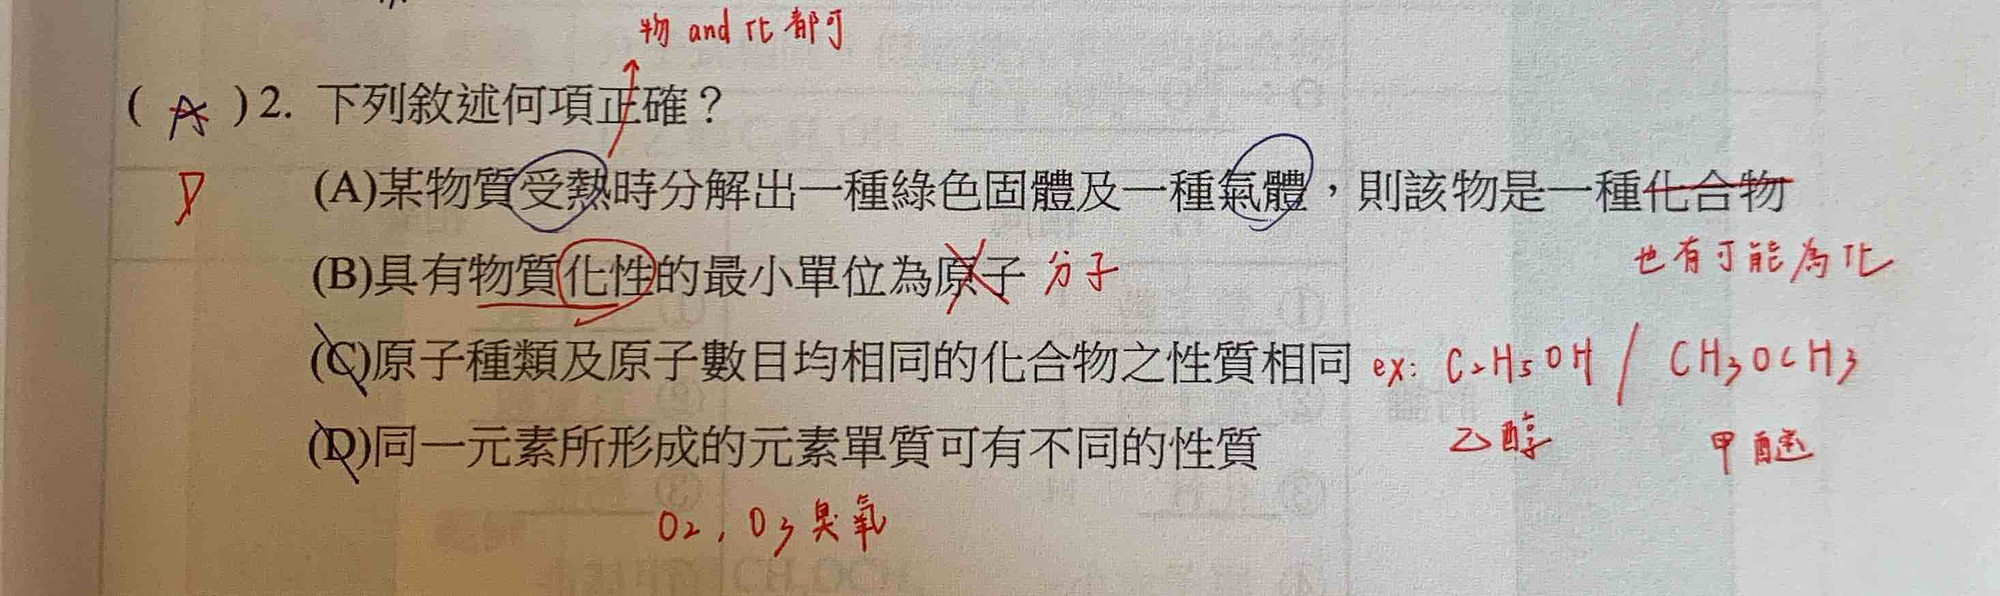 物 and 化 都可
( A ) 2. 下列敘述何項正確？
D
(A)某物質受熱時分解出一種綠色固體及一種氣體，則該物是一種化合物
也有可能為化
(B)具有物質化性的最小單位為原子 分子
(C)原子種類及原子數目均相同的化合物之性質相同 ex: C2H5OH / CH3OCH3
乙醇 甲醚
(D)同一元素所形成的元素單質可有不同的性質
O2, O3 臭氧